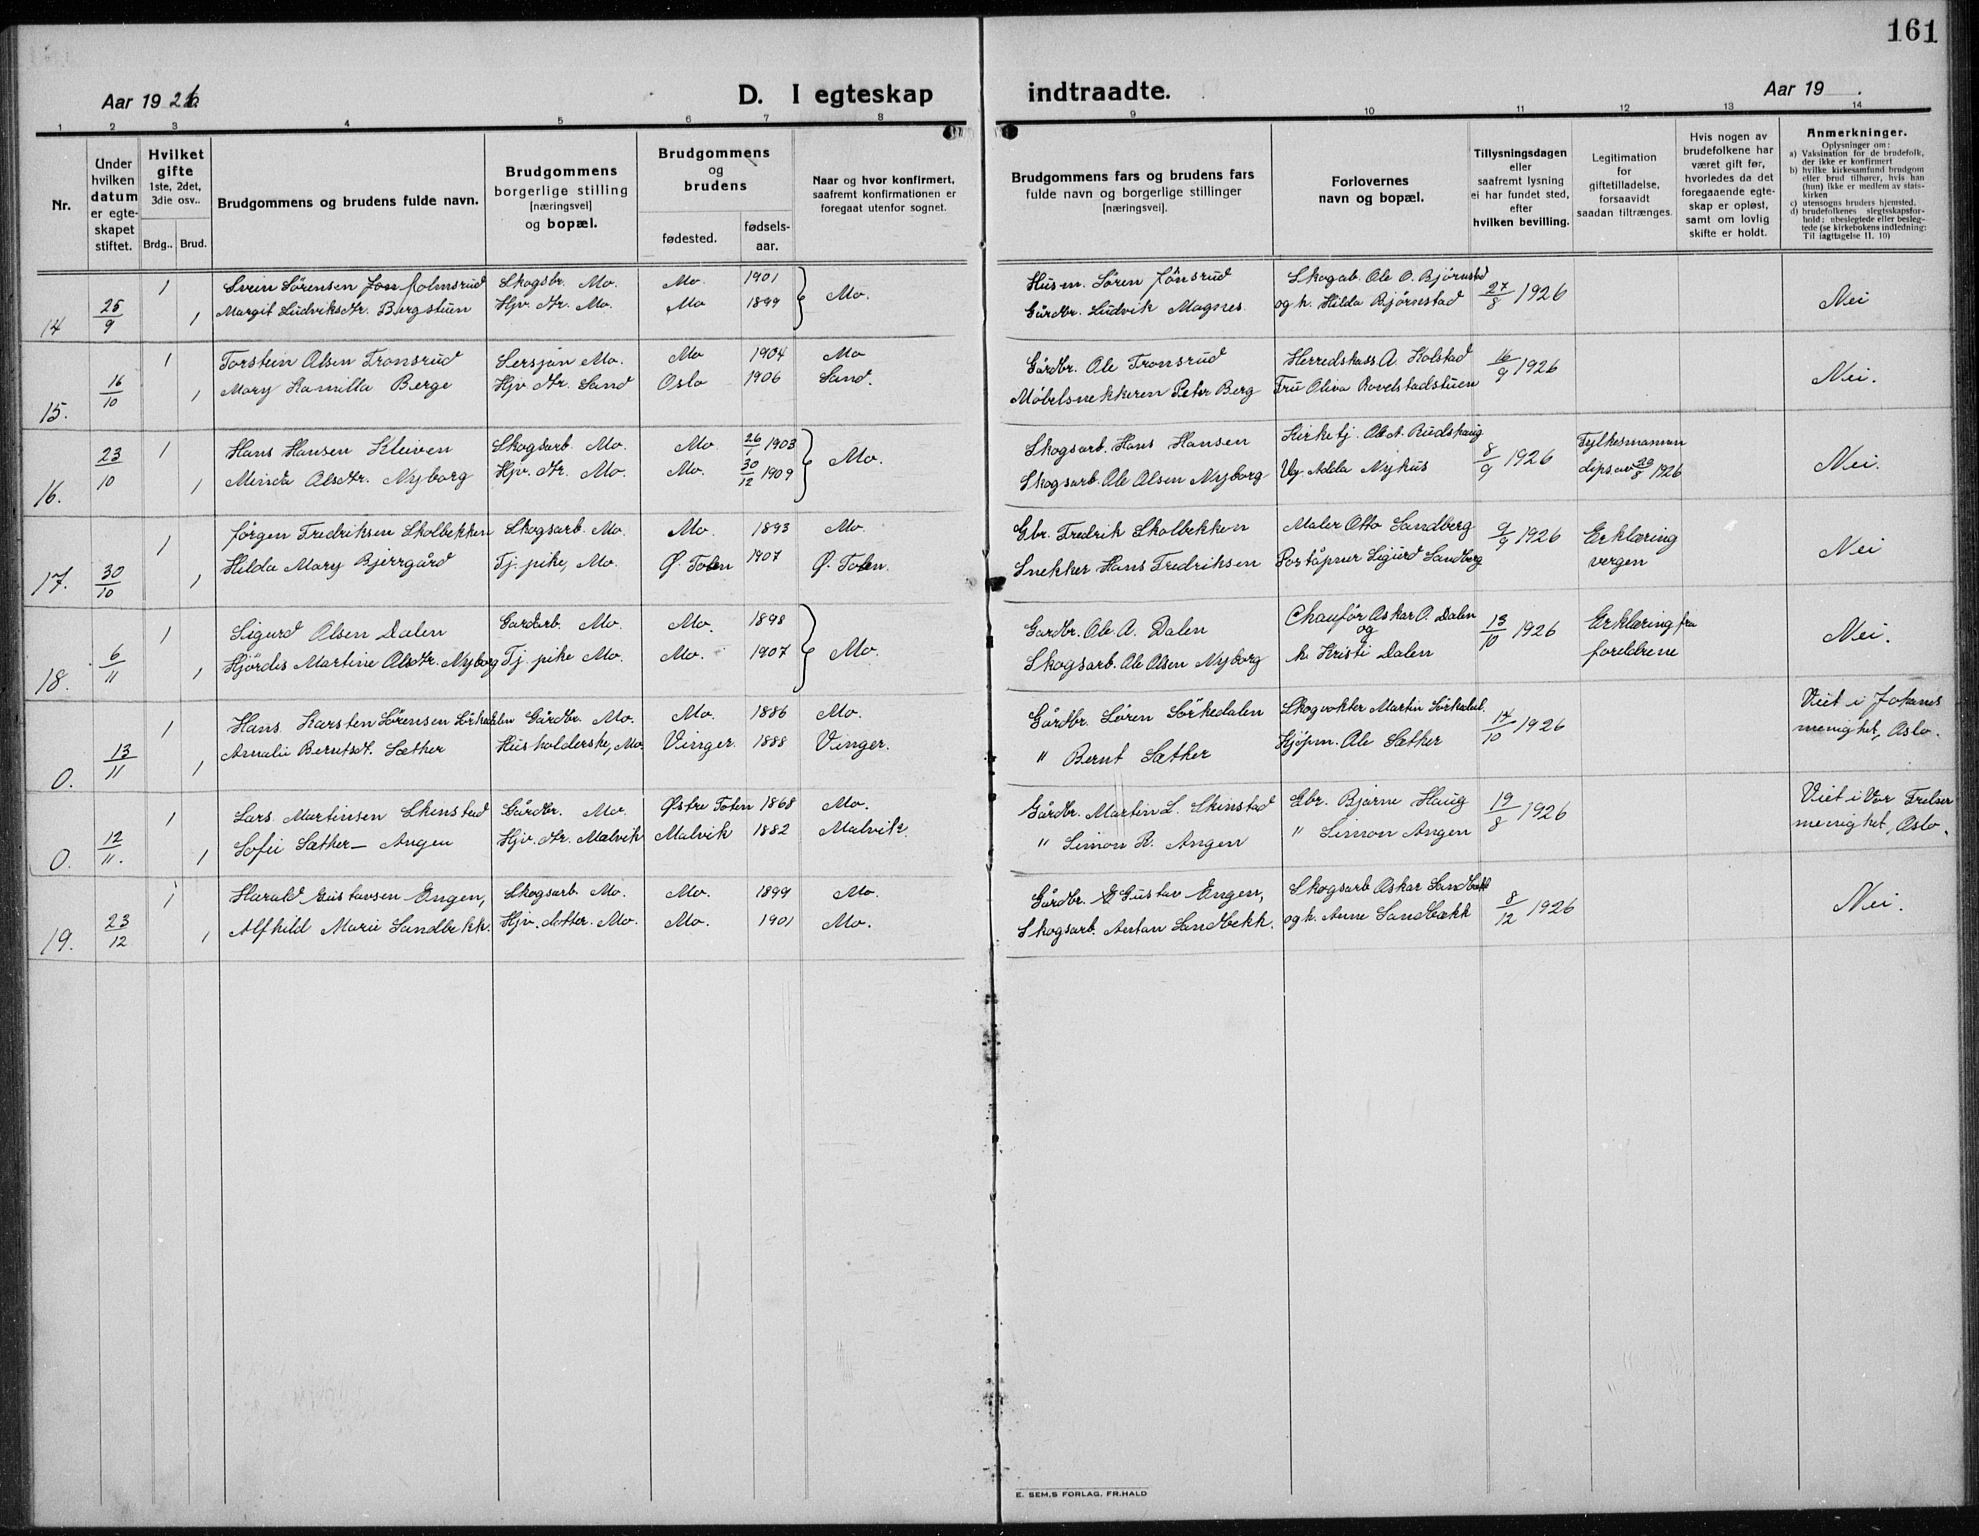 161
Aar 1926.
D. I egteskap indtraadte.
Aar 19 .
1 2 3 4 5 6 7 8 9 10 11 12 13 14
Nr.
Under hvilken datum er egte-skapet stiftet.
Hvilket gifte
1ste, 2det, 3die osv..
Brdg.. Brud.
Brudgommens og brudens fulde navn.
Brudgommens borgerlige stilling [næringsvei] og bopæl.
Brudgommens og brudens
fødested.
fødsels-aar.
Naar og hvor konfirmert, saafremt konfirmationen er foregaat utenfor sognet.
Brudgommens fars og brudens fars fulde navn og borgerlige stillinger [næringsvei].
Forlovernes navn og bopæl.
Tillysningsdagen eller saafremt lysning ei har fundet sted, efter hvilken bevilling.
Legitimation for giftetilladelse, forsaavidt saadan tiltrænges.
Hvis nogen av brudefolkene har været gift før, hvorledes da det foregaaende egte-skap er opløst, samt om lovlig skifte er holdt.
Anmerkninger.
Oplysninger om:
a) Vaksination for de brudefolk, der ikke er konfirmert
b) hvilke kirkesamfund brudgom eller brud tilhører, hvis han (hun) ikke er medlem av stats-kirken
c) utensogns bruders hjemsted.
d) brudefolkenes slegtsskapsfor-hold: ubeslegtede eller besleg-tede (se kirkebokens indledning: Til iagttagelse II. 10)
14 25/9 1 Svein Sørensen Jon Holmsrud Skogsbr. Mo. Mo. 1901 Mo. Husm. Søren Jönsrud Skogab. Ole O. Bjørnstad 27/8 1926 Nei
1 Margit Ludviksdtr. Bergstuen Hjv. dtr. Mo. Mo 1899 Gårdbr. Ludvik Magnes og h. Hilda Bjørnstad
15. 16/10 1 Torstein Olsen Tronsrud Sersjan Mo. Mo 1904 Mo Gårdbr. Ole Tronsrud Herredskass A. Kolstad 16/9 1926 Nei.
1 Mary Kamilla Berge Hjv. dtr. Sand Oslo 1906 Sand. Møbelsnekkeren Peter Berg Fru Oliva Rovelstadstuen
16. 23/10 1 Hans Hansen Kleiven Skogsarb. Mo. Mo. 26/1 1903 Mo. Skogsarb. Hans Hansen Kirketj. Ole A. Rudshaug 8/9 1926 Fylkesmannen Nei.
1 Minda Olsdtr. Nyborg Hjv. dtr. Mo. Mo. 30/12 1909 Skogsarb. Ole Olsen Nyborg Ug. Adda Nyhus disp. av 20/8 1926
17. 30/10 1 Jørgen Fredriksen Skolbekken Skogsarb. Mo. Mo. 1893 Mo. Gbr. Fredrik Skolbekken Maler Otto Sandberg 9/9 1926 Erklæring Nei
1 Hilda Mary Bjerrgård Tj. pike, Mo. Ø. Toten 1907 Ø. Toten. Snekker Hans Fredriksen Poståpner Sigurd Sandberg vergen
18. 6/11 1 Sigurd Olsen Dalen Gardarb. Mo. Mo. 1898 Mo. Gardbr. Ole A. Dalen Chauför Oskar O. Dalen og 13/10 1926 Erklæring fra Nei.
1 Hjördis Martine Olsdtr. Nyborg Tj. pike Mo. Mo. 1907 Skogsarb. Ole Olsen Nyborg h. Kristi Dalen foreldrene
0. 13/11 1 Hans Karsten Sørensen Sörkedalen Gårdbr. Mo. Mo. 1886 Mo. Gårdbr. Søren Sörkedalen Skogvokter Martin Sörkedal. 14/10 1926 Viet i Johanes
1 Amalie Berntsdt. Sæther Husholderske, Mo. Vinger. 1888 Vinger. " Bernt Sæther Kjøpm. Ole Sæther menighet, Oslo.
0. 12/11. 1 Lars Martinsen Skinstad Gårdbr. Mo. Østre Toten 1868 Mo. Gårdbr. Martin L. Skinstad Gbr. Bjarne Haug 19/8 1926 Viet i Vor Frelser
1 Sofie Sæther – Angen Hjv. dtr. Malvik Malvik 1882 Malvik. " Simon R. Angen " Simon Angen menighet, Oslo.
19. 23/12 1 Harald Gustavsen Engen, Skogsarb. Mo. Mo. 1899 Mo. Gårdbr. Gustav Engen, Skogsarb Oskar Sandbekk 8/12 1926 Nei.
1 Alfhild Marie Sandbekk. Hjv. datter. Mo. Mo. 1901 Mo. Skogsarb. Antan Sandbekk. og h. Anne Sandbækk
E. SEM,S FORLAG, FR.HALD